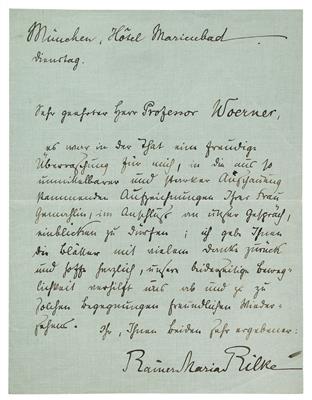 München, Hôtel Marienbad
Dienstag.
Sehr geehrter Herr Professor Woerner,
es war in der That eine freudige
Überraschung für mich, in die aus so
unmittelbarer und starker Anschauung
stammenden Aufzeichnungen Ihrer Frau
Gemahlin, im Anschluß an unser Gespräch,
einblicken zu dürfen; ich geb Ihnen
die Blätter mit vielem Danke zurück
und hoffe herzlich, unsere beiderseitige Beweg-
lichkeit verhilft uns ab und zu zu
solchen Begegnungen freundlichen Wieder-
sehens. Ihr, Ihnen beiden sehr ergebener:
Rainer Maria Rilke